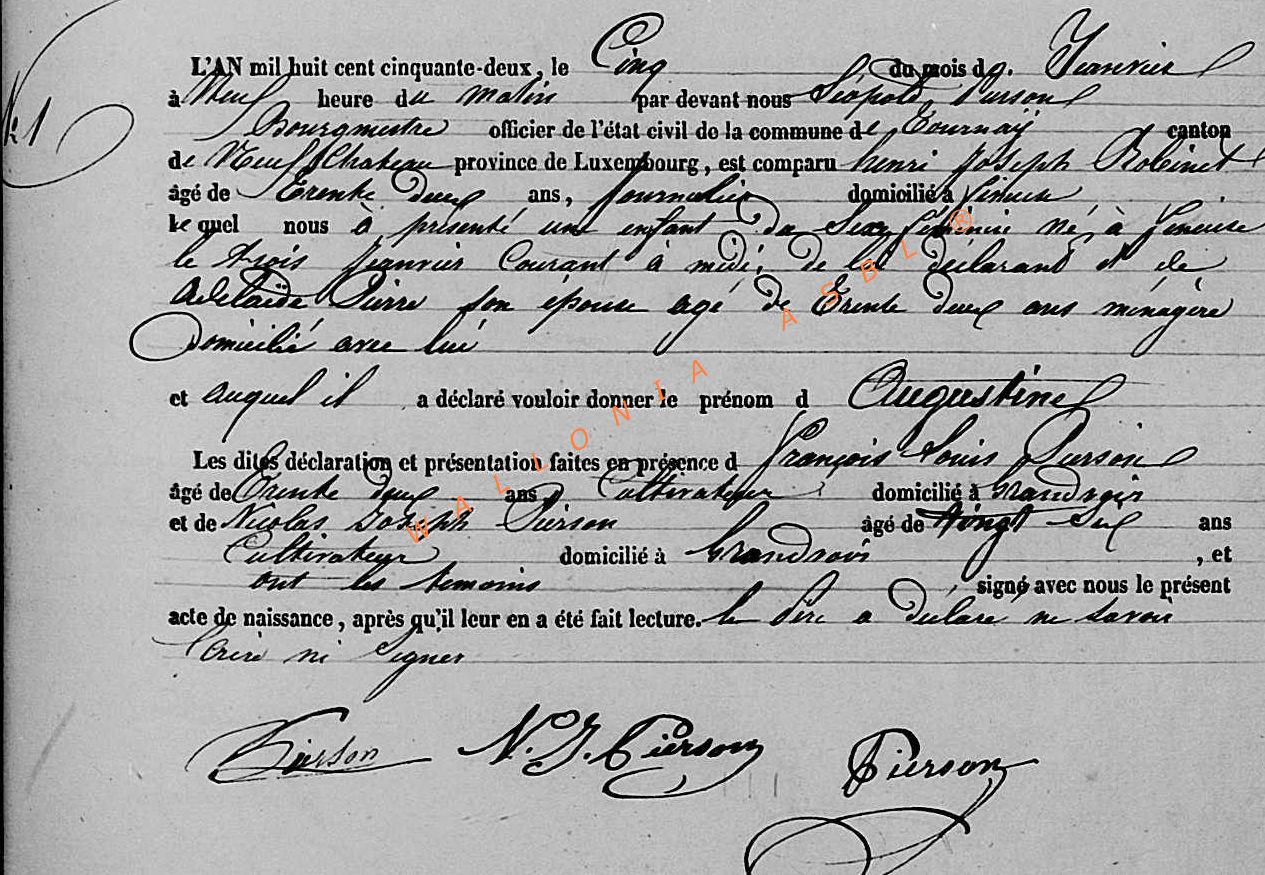 L'AN mil huit cent cinquante-deux, le Cinq du mois de Janvier
N° 1
à Neuf heure du matin par devant nous Léopold Pierson
Bourgmestre officier de l'état civil de la commune de Tournay canton
de Neufchateau province de Luxembourg, est comparu henri Joseph Robinet
âgé de Trente deux ans, journalier domicilié à
le quel nous à présenté une enfant du Sexe féminin né à
le trois Janvier Courant à midi, de lui déclarant et de
Adelaïde Pierre son épouse agé de Trente deux ans ménagère
Domicilié avec lui
et auquel il a déclaré vouloir donner le prénom d Augustine
Les dites déclaration et présentation faites en présence d François Louis Pierson
âgé de Trente deux ans, Cultivateur domicilié à Grandvoir
et de Nicolas Joseph Pierson âgé de vingt Six ans
Cultivateur domicilié à Grandvoir, et
ont les temoins signé avec nous le présent
acte de naissance, après qu'il leur en a été fait lecture. le Père a déclaré ne savoir
Ecrire ni Signer
Pierson N. J. Pierson Pierson
WALLONIA ASBL ®